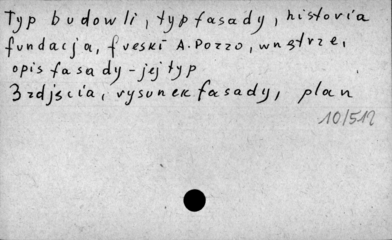 Typ budowli, typ fasady, historia
fundacja, freski A. Pozzo, wnętrze,
opis fasady - jej typ
3 zdjęcia, rysunek fasady, plan
10/512